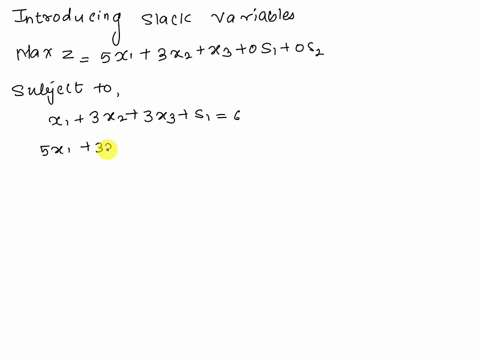 Introducing slack variables
Max Z = 5x₁ + 3x₂ + x₃ + 0S₁ + 0S₂
Subject to,
x₁ + 3x₂ + 3x₃ + S₁ = 6
5x₁ + 3